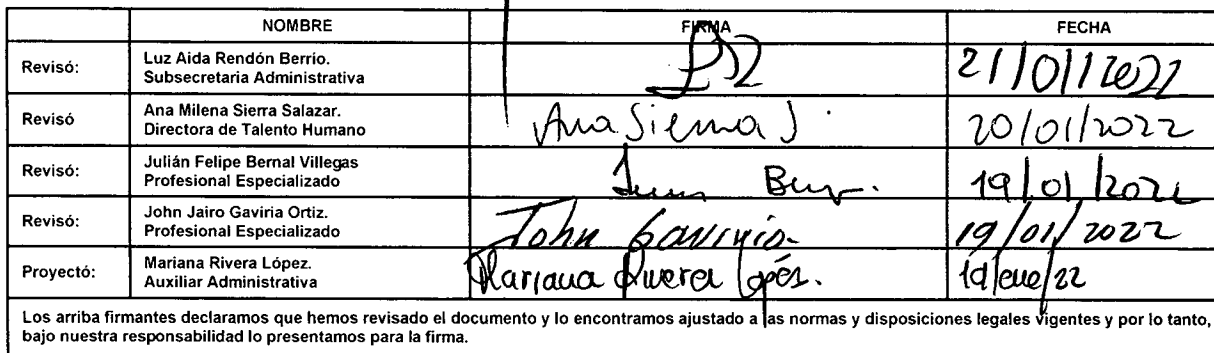 NOMBRE FIRMA FECHA
Revisó: Luz Aida Rendón Berrío.
Subsecretaria Administrativa
21/01/2022
Revisó Ana Milena Sierra Salazar.
Directora de Talento Humano
Ana Sierra S. 20/01/2022
Revisó: Julián Felipe Bernal Villegas
Profesional Especializado
19/01/2022
Revisó: John Jairo Gaviria Ortiz.
Profesional Especializado
John Gaviria 19/01/2022
Proyectó: Mariana Rivera López.
Auxiliar Administrativa
Mariana Rivera López. 19/ene/22
Los arriba firmantes declaramos que hemos revisado el documento y lo encontramos ajustado a las normas y disposiciones legales vigentes y por lo tanto,
bajo nuestra responsabilidad lo presentamos para la firma.